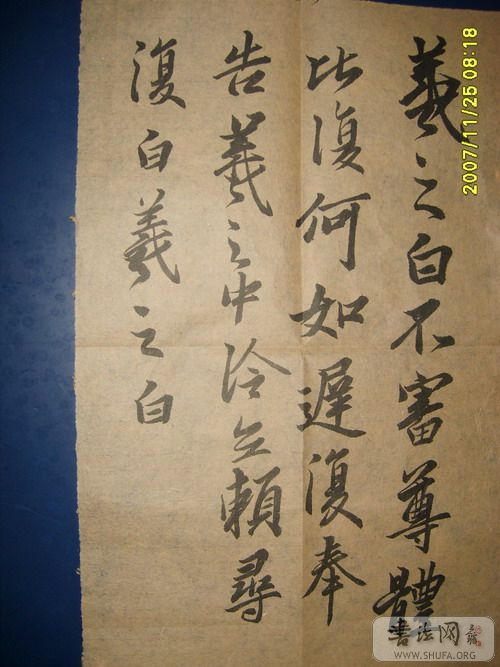 羲之白不審尊體
比復何如遲復奉
告羲之中冷無賴尋
復白羲之白
2007/11/25 08:18
書法网
WWW.SHUFA.ORG